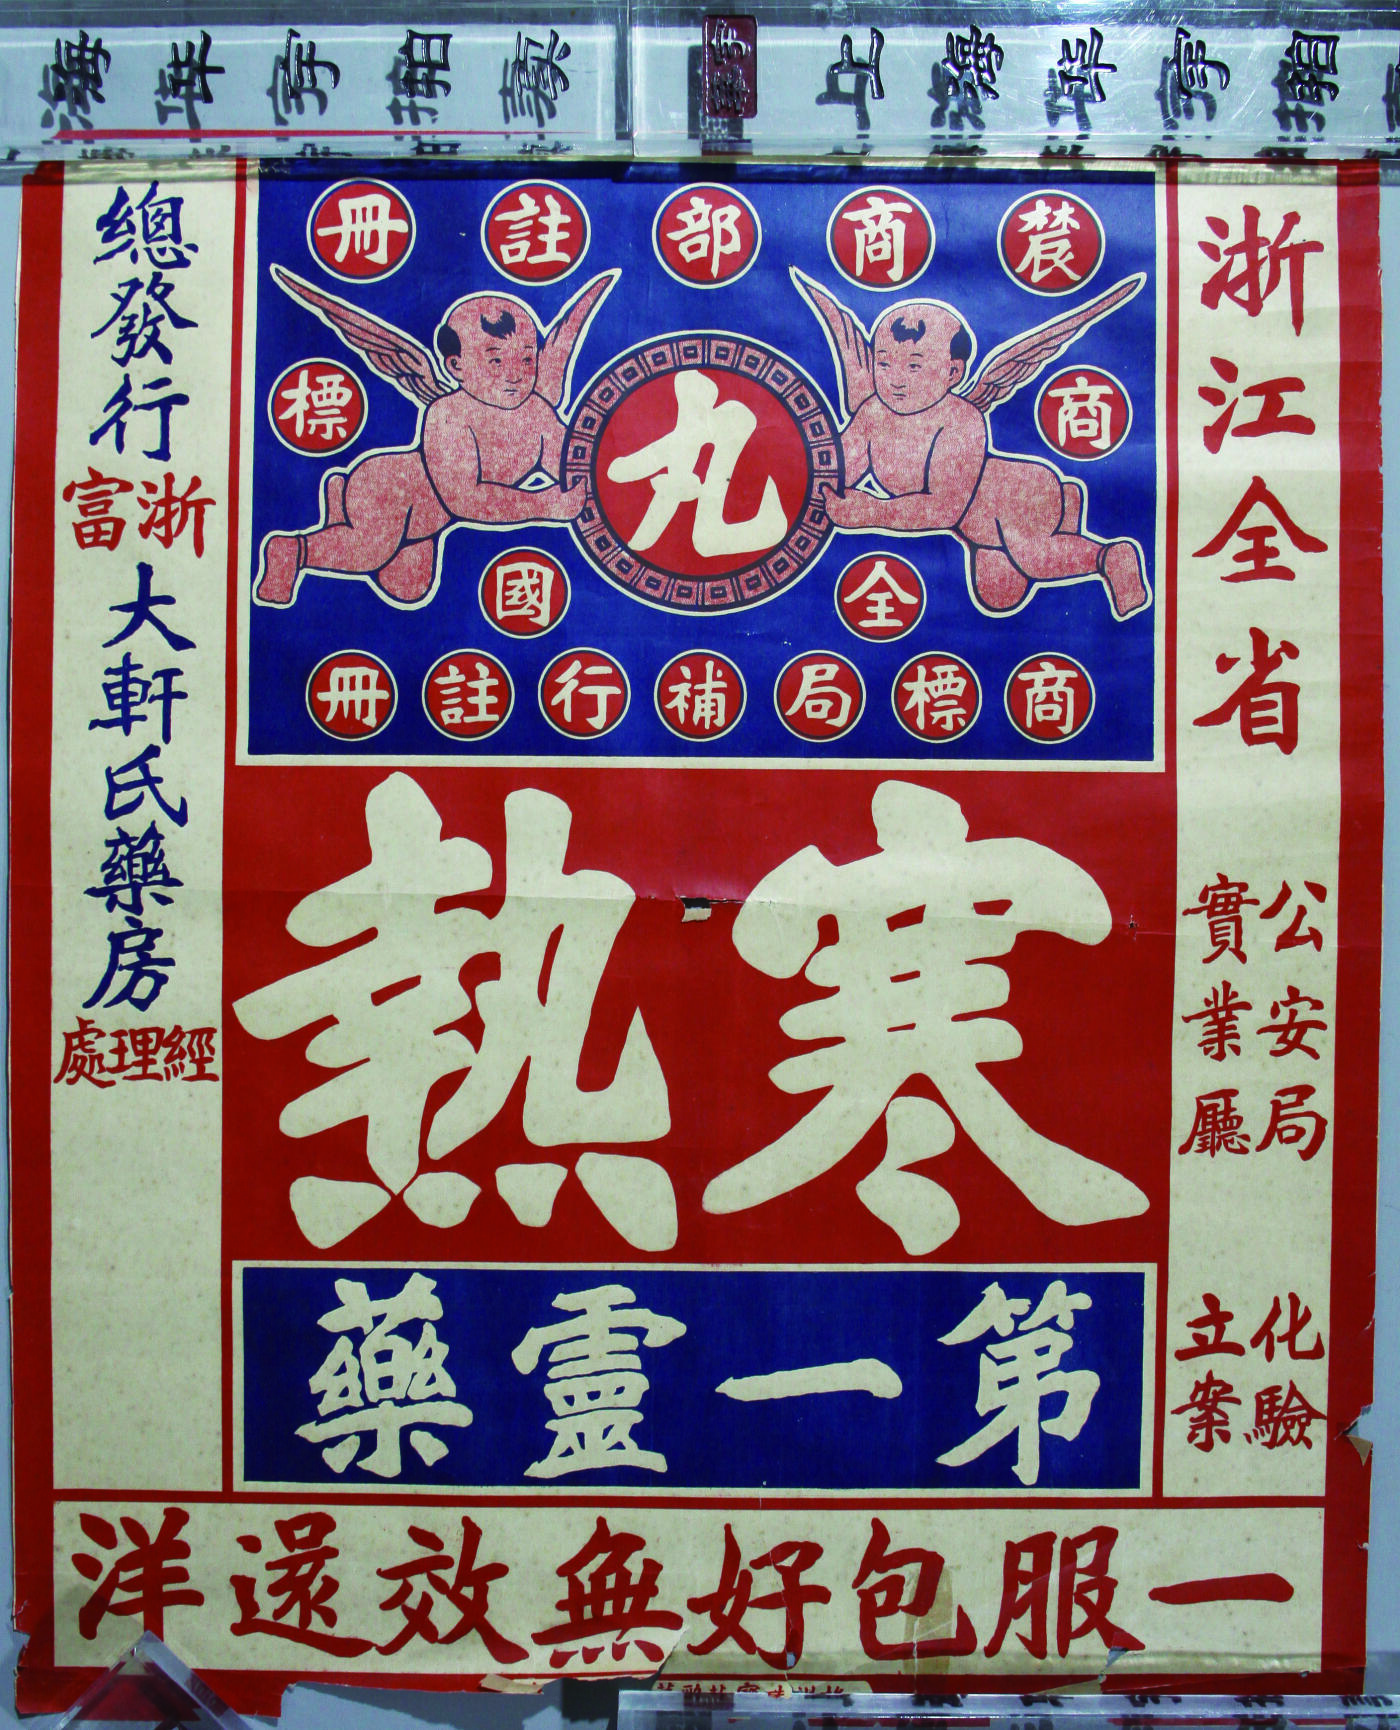 上海華宇拍賣
農商部註冊
商標
丸
全國
商標局補行註冊
寒熱
第一靈藥
浙江全省
公安局
實業廳
化驗
立案
總發行
浙富
大軒氏藥房
經理處
一服包好無效還洋